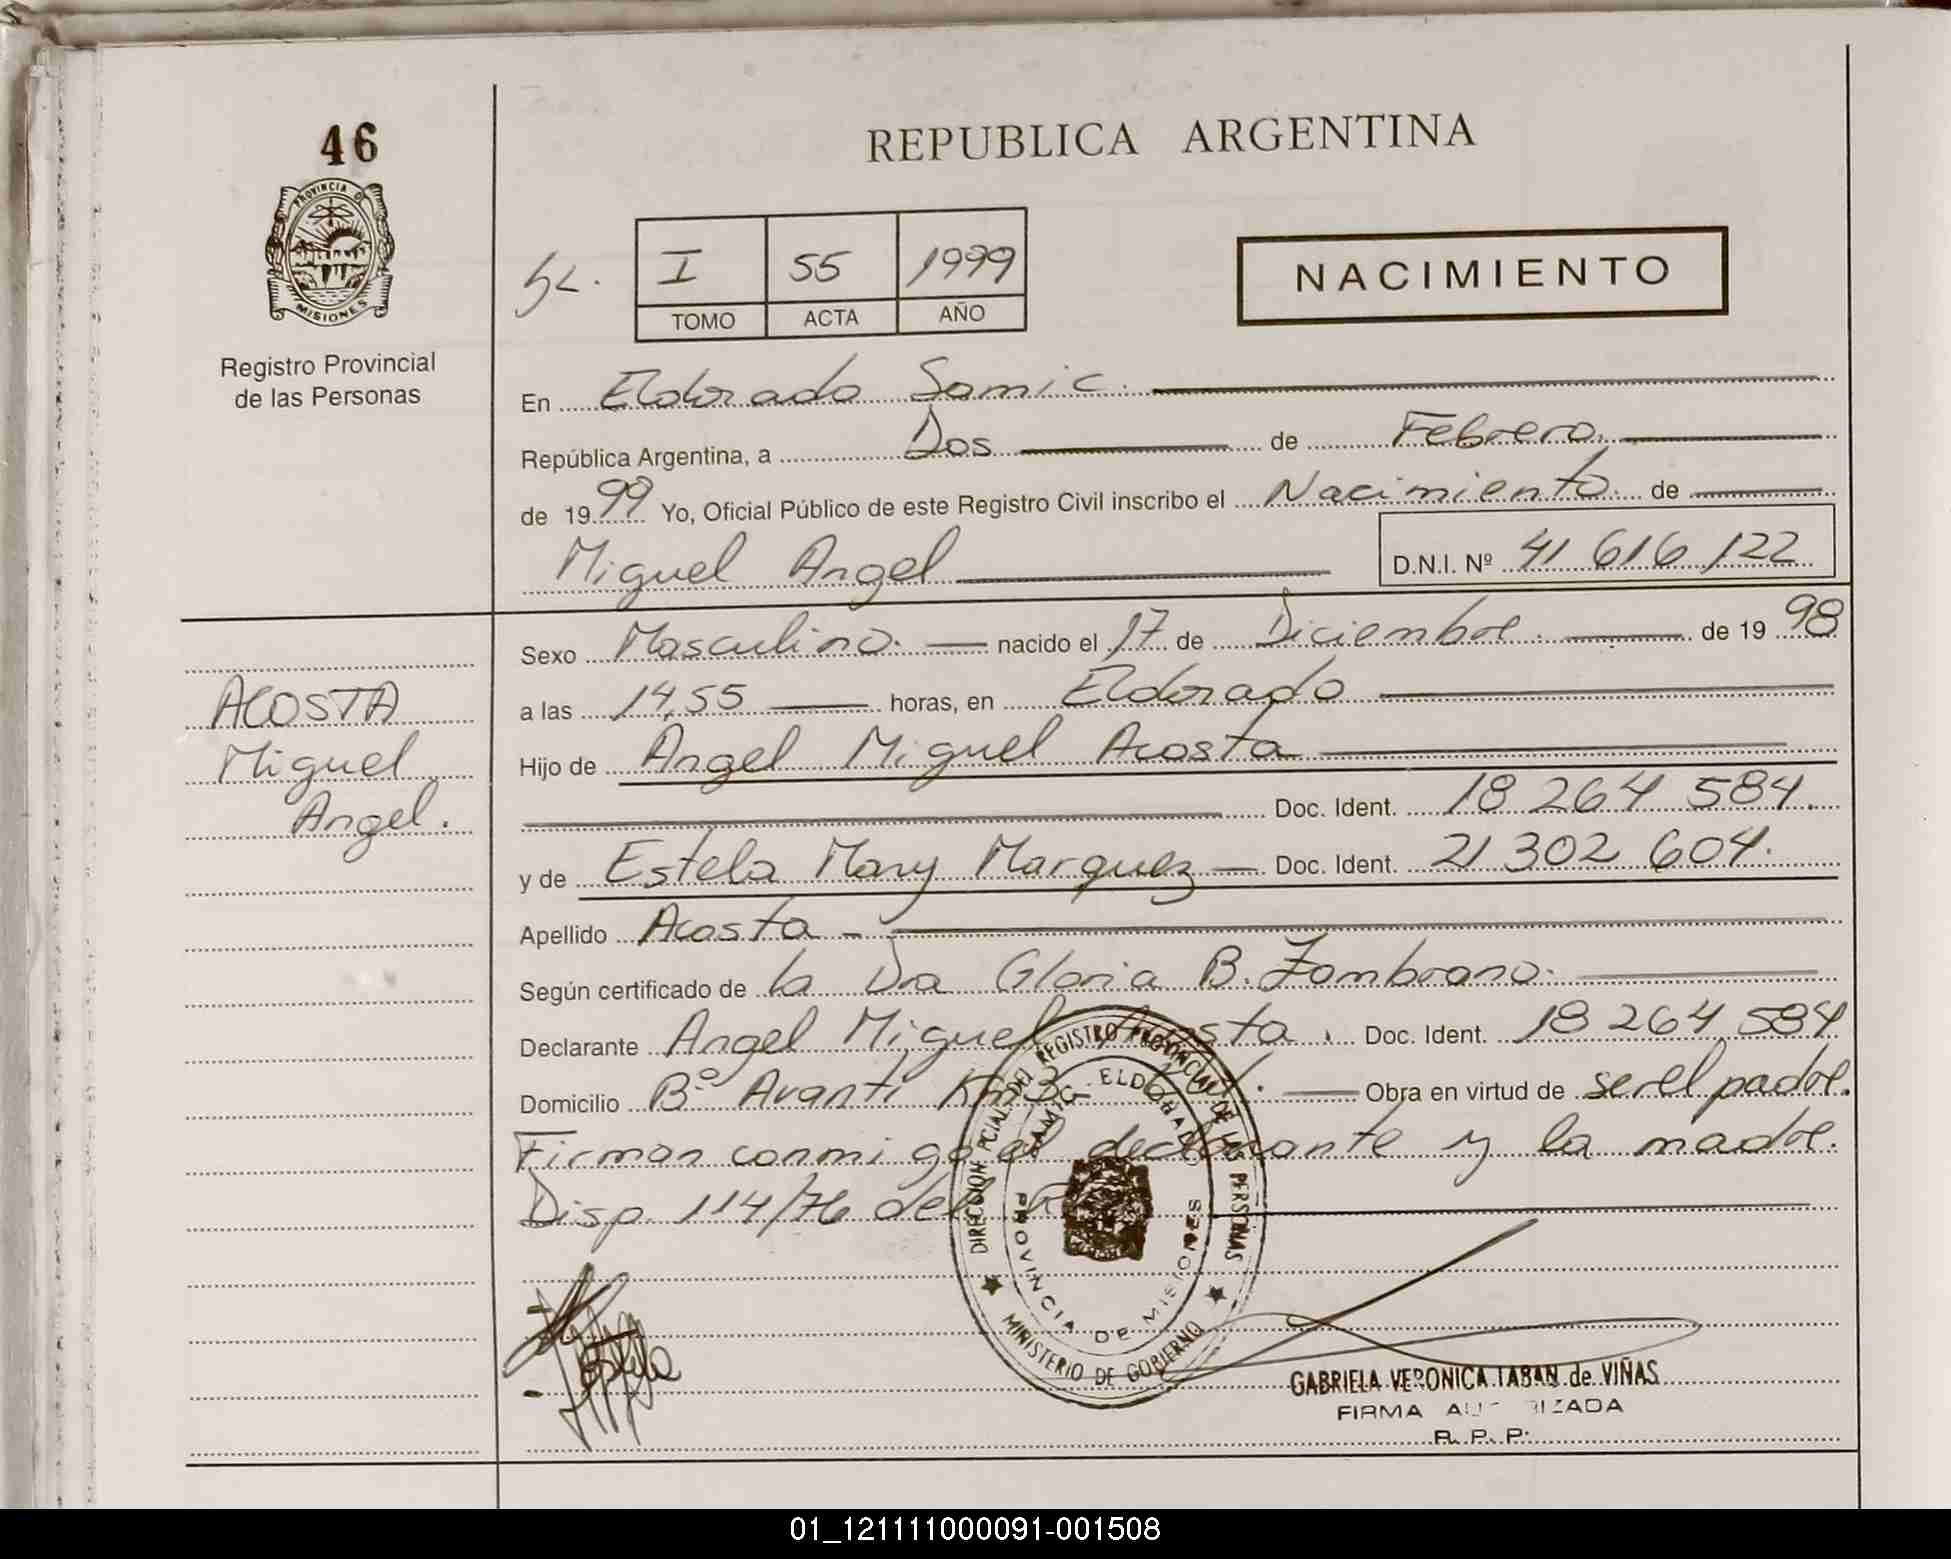 46
PROVINCIA DE
MISIONES
Registro Provincial
de las Personas
REPUBLICA ARGENTINA
I 55 1999
TOMO ACTA AÑO
NACIMIENTO
En Eldorado Samic.
República Argentina, a Dos de Febrero.
de 1999 Yo, Oficial Público de este Registro Civil inscribo el Nacimiento. de
Miguel Angel D.N.I. Nº 41 616 122
Sexo Masculino. nacido el 17 de Diciembre. de 1998
a las 14,55 horas, en Eldorado
Hijo de Angel Miguel Acosta
Doc. Ident. 18 264 584.
y de Estela Mary Marquez Doc. Ident. 21 302 604.
Apellido Acosta
Según certificado de la Dra Gloria B. Zambrano.
Declarante Angel Miguel Acosta. Doc. Ident. 18 264 584
Domicilio Bº Avanti Km3 Obra en virtud de ser el padre.
Firman conmigo el declarante y la madre.
Disp. 114/76 del
ACOSTA
Miguel
Angel.
DIRECCION PCIAL DEL REGISTRO PROVINCIAL DE LAS PERSONAS
MINISTERIO DE GOBIERNO
SAMIC - ELDORADO
PROVINCIA DE MISIONES
Estela
GABRIELA VERONICA TABAN de VIÑAS
FIRMA AUTORIZADA
R. P. P.
01_121111000091-001508